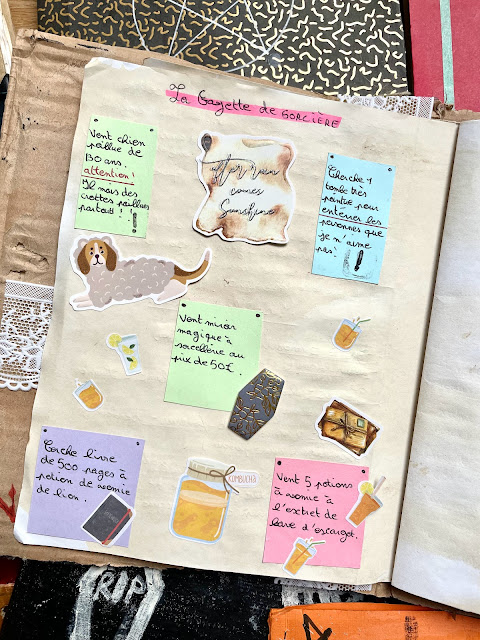 La Gazette de SORCIÈRE
Vent chien
paillue de
130 ans,
attention!
Il mais des
crottes paillues
partout!!
After rain
comes
Sunshine
Cherche 1
tombe très
pointue pour
entérrer les
personnes que
je n'aime
pas!!
Vent miroir
magique à
sorcellerie au
prix de 50£.
Cerche livre
de 500 pages à
potion de
de lion.
KOMBUCHA
Vent 5 potions
à
l'extret de
bave d'escargot.
RIP